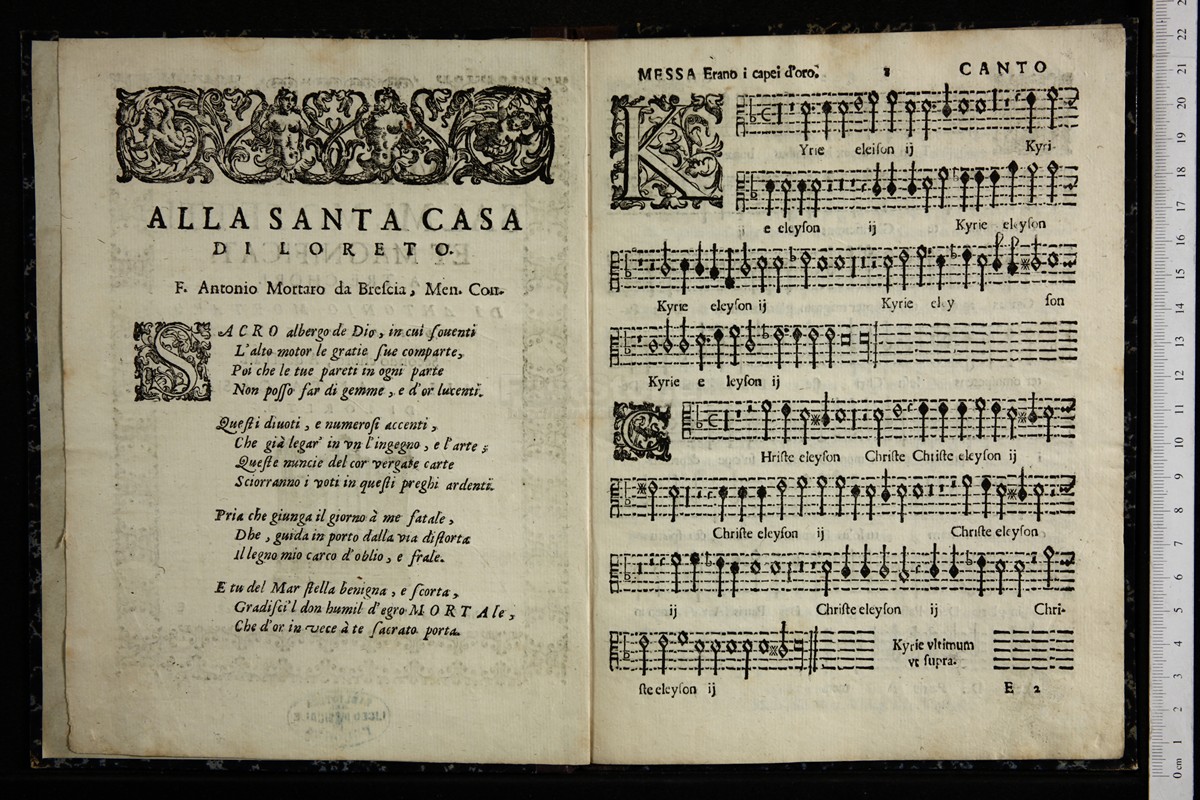 ALLA SANTA CASA
DI LORETO.
F. Antonio Mortaro da Breſcia, Men. Con.
SACRO albergo de Dio, in cui ſouenti
L'alto motor le gratie ſue comparte,
Poi che le tue pareti in ogni parte
Non poſſo far di gemme, e d'or lucenti.
Queſti diuoti, e numeroſi accenti,
Che già legar' in vn l'ingegno, e l'arte;
Queſte nuncie del cor vergate carte
Sciorranno i voti in queſti preghi ardenti.
Pria che giunga il giorno à me fatale,
Dhe, guida in porto dalla via diſtorta
Il legno mio carco d'oblio, e frale.
E tu del Mar ſtella benigna, e ſcorta,
Gradiſci'l don humil d'egro MORTAle,
Che d'or in vece à te ſacrato porta.
MESSA Erano i capei d'oro. CANTO
KYrie eleiſon ij Kyri-
ij e eleyſon ij Kyrie eleyſon
Kyrie eleyſon ij Kyrie eley ſon
Kyrie e leyſon ij
CHriſte eleyſon Chriſte Chriſte eleyſon ij
Chriſte eleyſon ij Chriſte eleyſon
ij Chriſte eleyſon ij Chri-
ſte eleyſon ij
Kyrie vltimum
vt ſupra.
E 2
0 cm 1 2 3 4 5 6 7 8 9 10 11 12 13 14 15 16 17 18 19 20 21 22